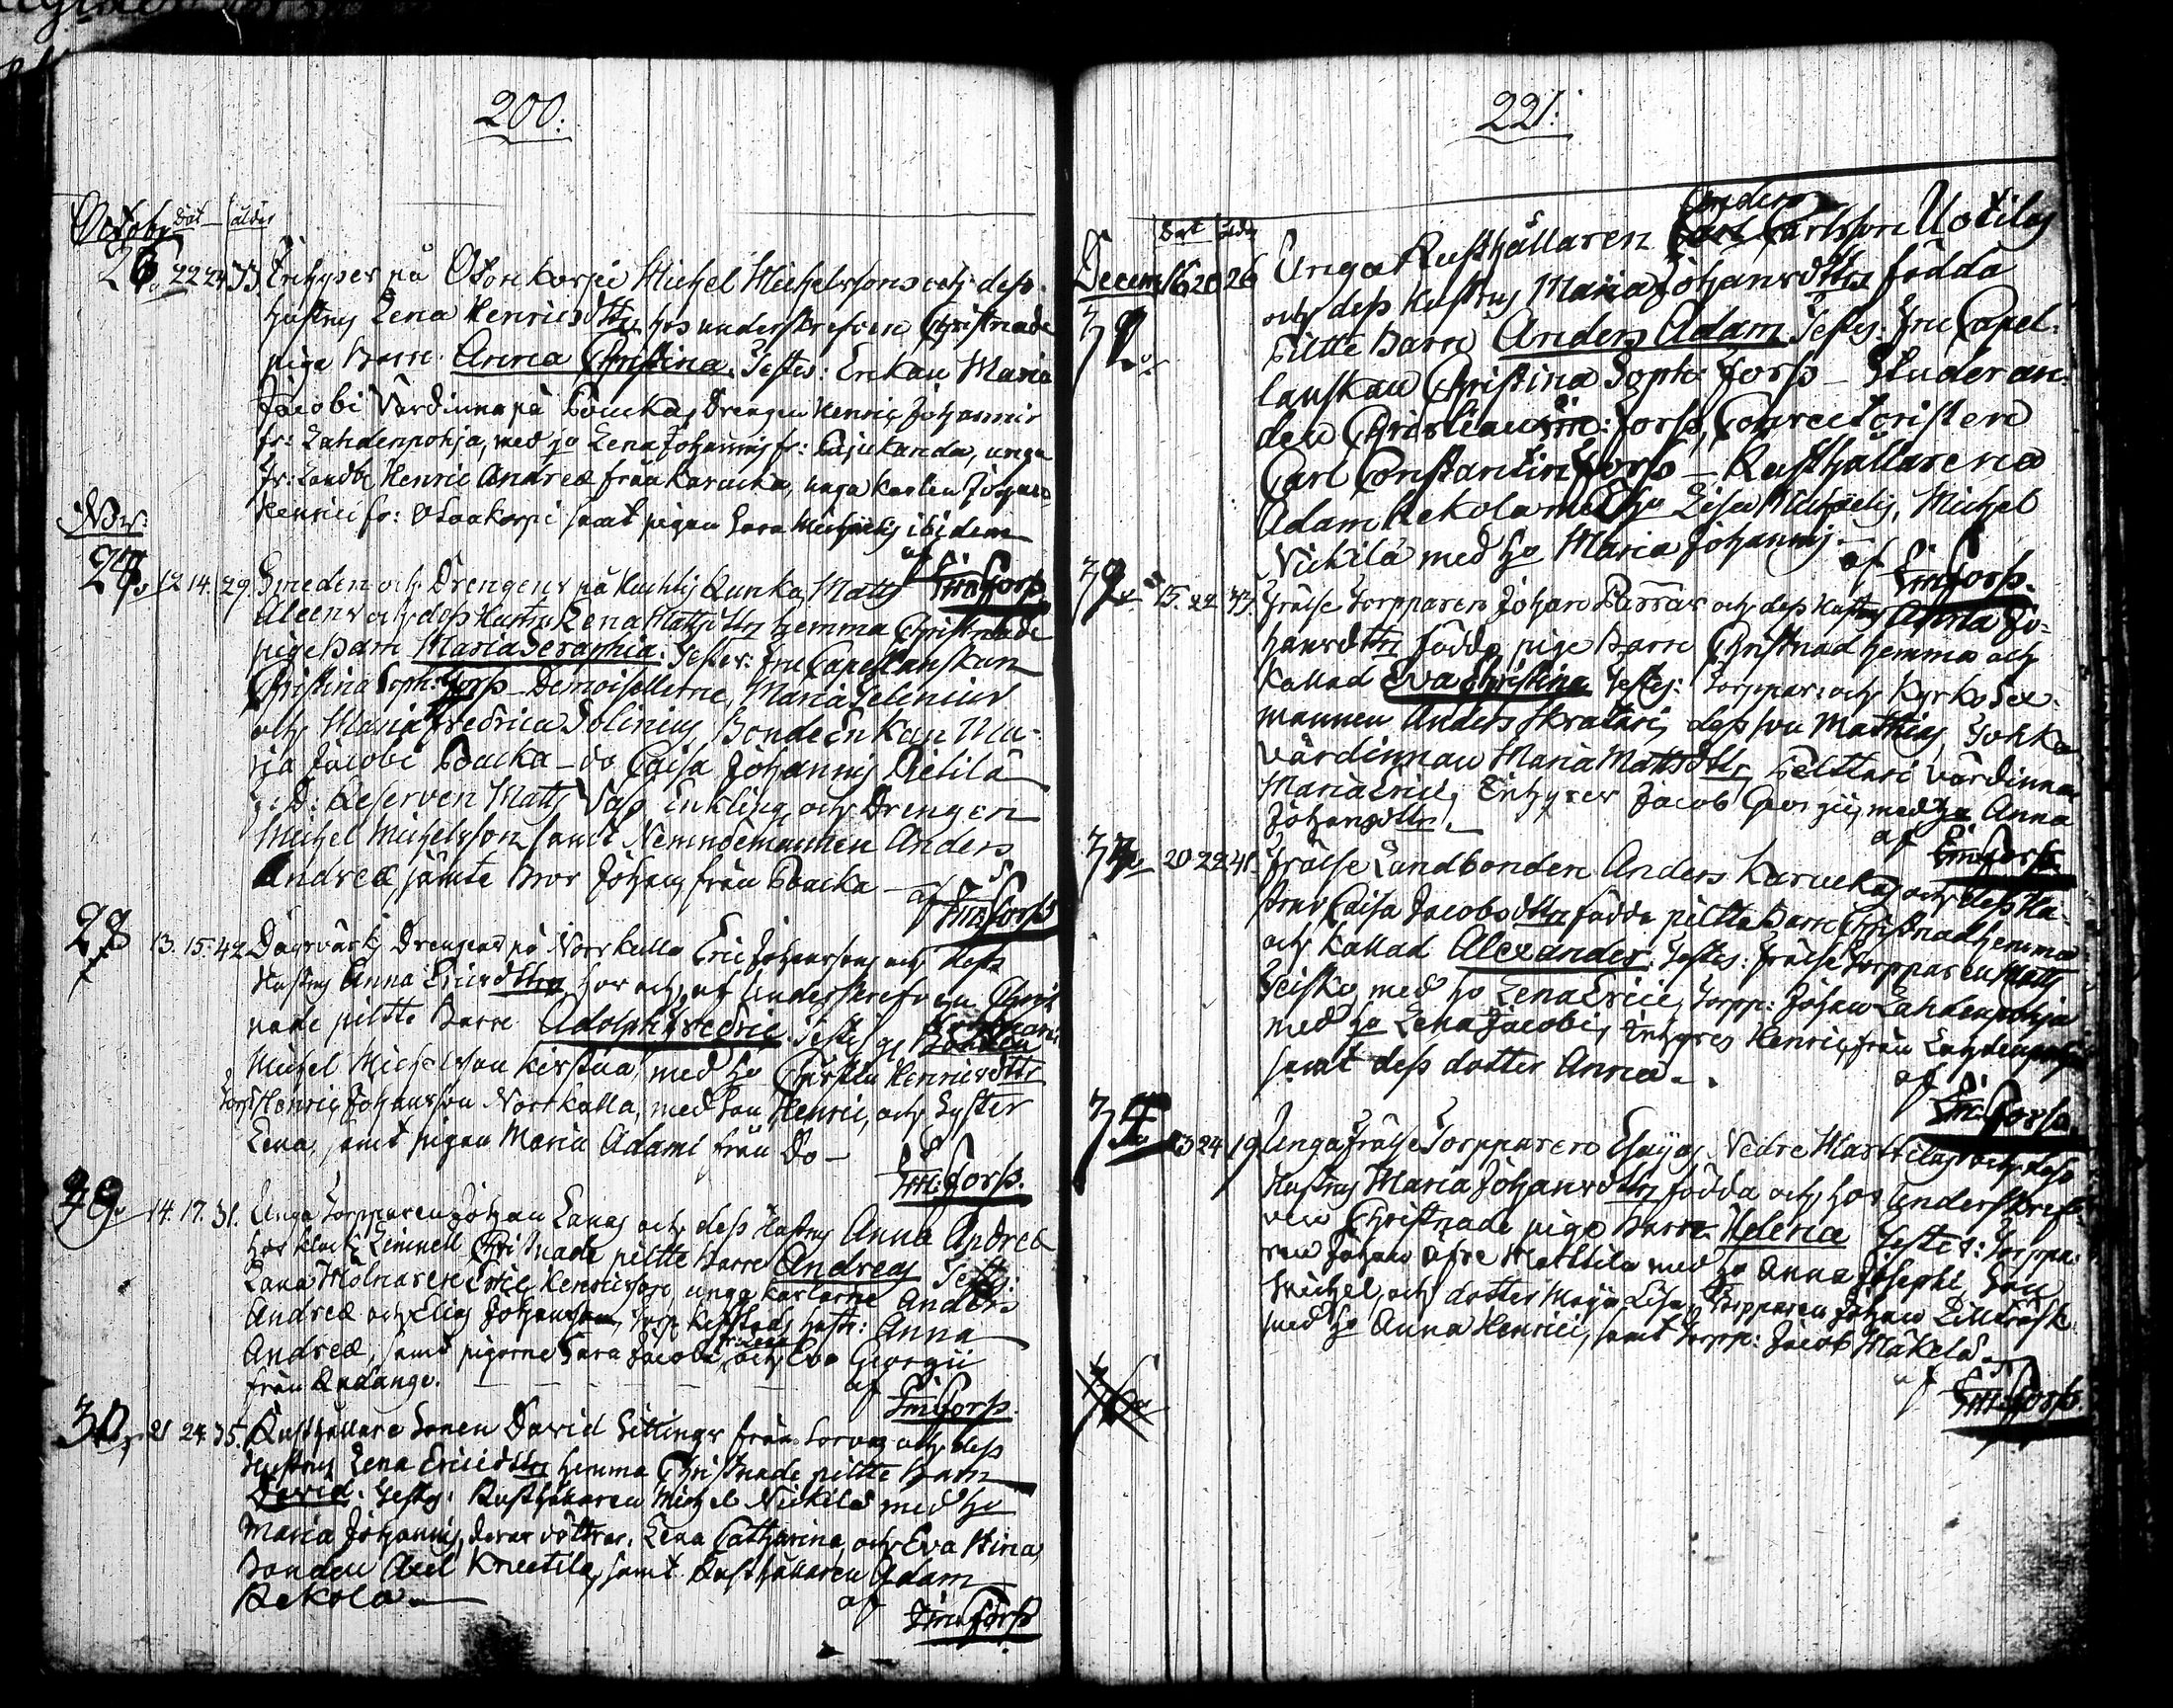 200.
Octobr dat ålder
26. 22 24 33. Inhyses på Otonkorpi Michel Michelssons och dess
hustrus Lena Henricsdttrs hos underskrefven Christnade
pige Barn. Anna Christina. Testes: Enkan Maria
Jacobi Värdinna på Boucka, Drengen Henric Johannis
fr: Lahdenpohja, med ho Lena Johannis fr: Pajukanda, unga
fr: Landb: Henric Andreæ från Karucka, unga Karlen Johan
Henrici fr: Otonkorpi samt pigan Sara Michaelis ibidem
af Em Forss.
Nov:
27. 12. 14. 29. Smedens och Drengens på Kunka Matts
Aleens och dess Hustrus Lena Mattsdttrs hemma Christnade
pige Barn Maria Seraphia. Testes: Fru Capellanskan
Christina Soph: Forss - Demoisellerne, Maria Selinius
och Maria Fredrica Solinius, Bonde Enkan Ma-
ria Jacobi Boucka - do Caisa Johannis Dietilä
Reserven Matts Vass Enkling och Drengen
Michel Michelsson samt Nemndemannen Anders
Andreæ jämte Bror Johan, från Boucka -
af Em Forss
28 13. 15. 42 Dagsvärks Drengens på Norrkulla Eric Johanssons och dess
Hustrus Anna Ericsdttrs hos och af Underskrefven Christ
nade piltte Barn Adolph Fredric. Testes gl
Michel Michelsson Kirstua, med ho Christin Henricsdttr
Torp: Henric Johansson Norrkulla, med Son Henric, och Syster
Lena, samt pigan Maria Adami från do -
Em: Forss.
29. 14. 17. 31. Unga Torpparen Johan Lanas och dess Hustrus Anna Andreæ
hos Klock: Limnell Christnade piltte Barn Andreas Testes:
Lana Mölnaren Eric Henricsson, unga Karlarne Anders
Andreæ och Elias Johansson, Torp: hust: Anna
Andreæ, samt pigorne Sara Jacobi, och Eva Georgii
från Andänge.
af Em Forss.
30. 21 24. 35. Rusthållare Sonen David Sittings från Sorvas och dess
Hustrus Lena Ericsdttrs hemma Christnade piltte Barn
David. Testes: Rusthållaren Michel Nickilä med ho
Maria Johannis, deras döttrar, Lena Catharina, och Eva Stina,
Bonden Axel Knutila, samt Rusthållaren Adam
Rekola -
af Em Forss
221.
Dat ålder
Anders
Decem 16 20 26 Unga Rusthållaren Carl Carlsson Uotilas
31. och dess Hustrus Maria Johansdttrs födda
Piltte Barn Anders Adam. Testes: Fru Capel-
lanskan Christina Soph: Forss - Studeran-
den Christian Em: Forss, Conrectoristen
Carl Constantin Forss - Rusthållarena
Adam Rekola med ho Lisa Michaelis, Michel
Nickilä med ho Maria Johannis. -
af Em Forss.
32. 15. 22 Frälse Torpparens Johan Parras och dess Hustrus Anna Jo-
hansdttrs födda pige Barn Christnad hemma och
Kallad Eva Christina Testes: Torppar: och Kyrko Sex-
mannen Anders Skratari, dess son Matthias, Jokka
värdinnan Maria Mattsdttr, Pelttari värdinnan
Maria Erici, Inhyses Jacob Georgii, med ho Anna
Johansdttr. -
af Em Forss
33. 20. 22 41. Frälse Landbonden Anders Karuckas och dess Hu-
strus Caisa Jacobsdttrs födda piltte Barn Christnad hemma
och Kallad Alexander. Testes: Frälse Torpparen Matts
Seisko, med ho Lena Erici, Torpp: Johan Lahdenpohja
med ho Lena Jacobi, Inhyses Henric, från Lahdenpohja
samt dess dotter Anna. -
af Em: Forss.
34. 23 24 19 Unga Frälse Torpparens Esajas Nedre Marttilas och dess
Hustrus Maria Johansdttrs födda och hos Underskref-
ven Christnade pige Barn Helena Testes: Torppa-
ren Johan Öfre Marttila med ho Anna Josephi, Son
Michel, och dotter Maja Lisa, Torpparen Johan Lillträsk
med ho Anna Henrici, samt Torpp: Jacob Mäkelä -
af Em: Forss